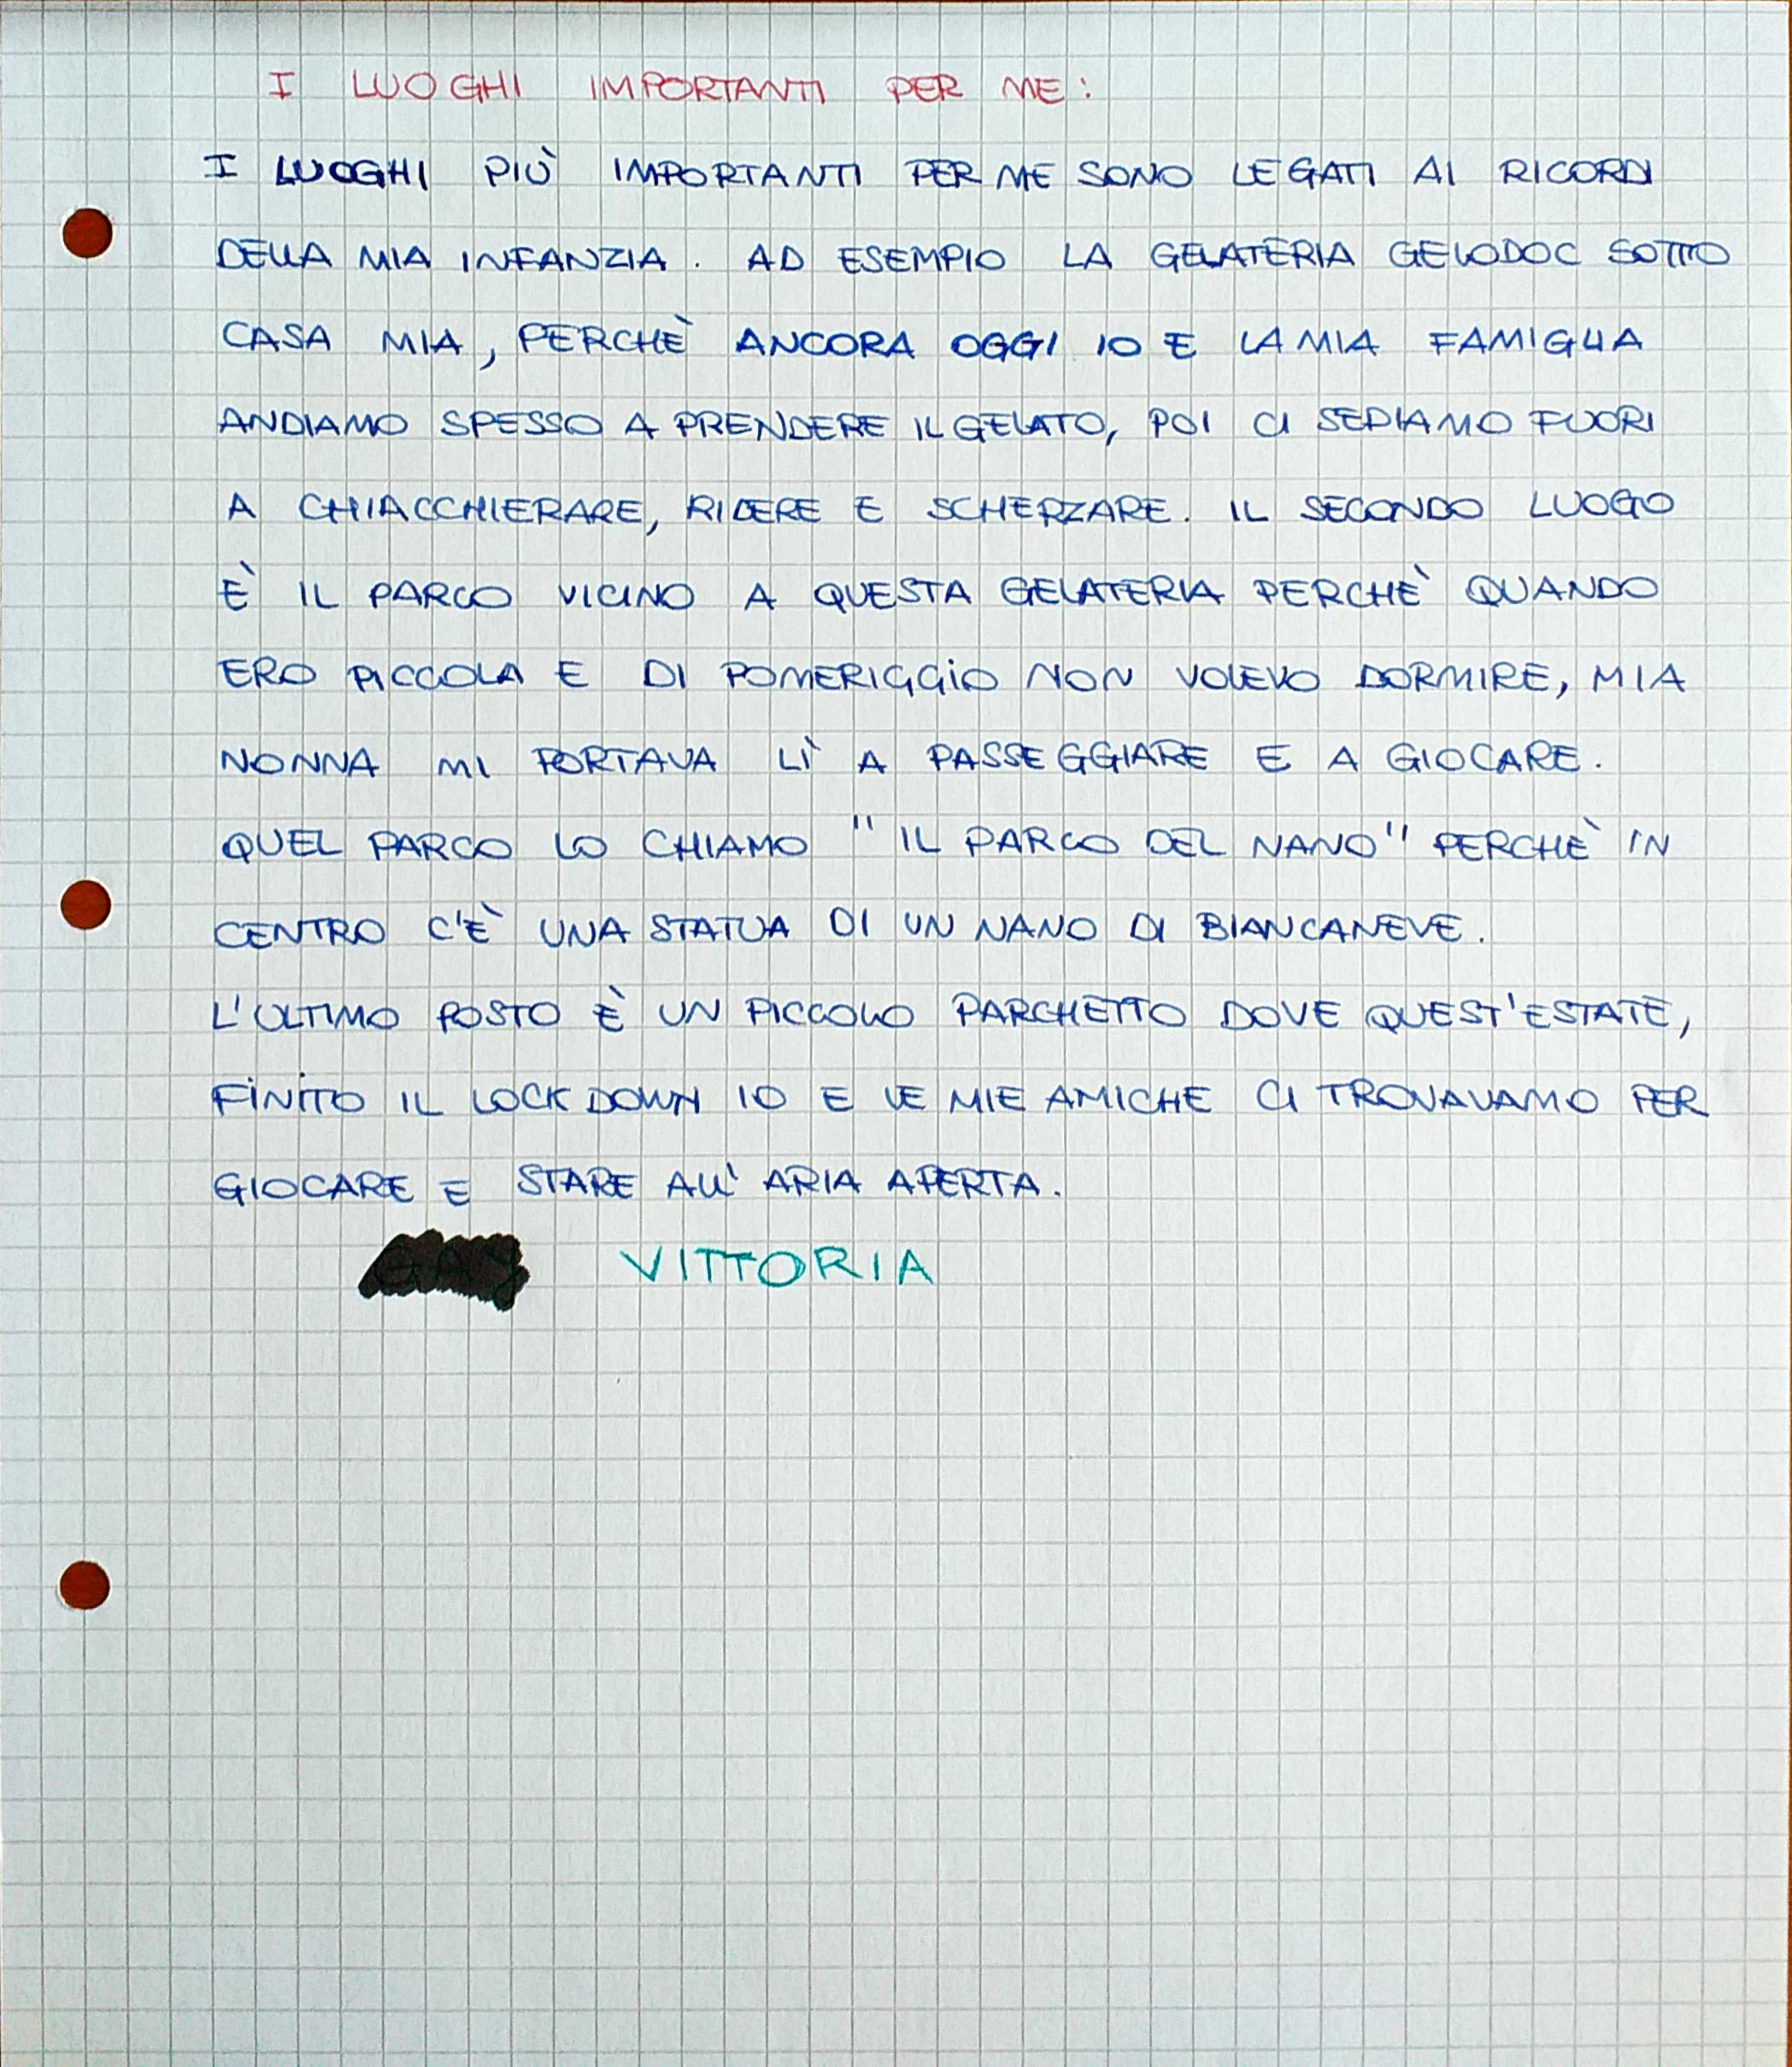 I LUOGHI IMPORTANTI PER ME:
I LUOGHI PIÙ IMPORTANTI PER ME SONO LEGATI AI RICORDI
DELLA MIA INFANZIA. AD ESEMPIO LA GELATERIA GELODOC SOTTO
CASA MIA, PERCHÈ ANCORA OGGI IO E LA MIA FAMIGLIA
ANDIAMO SPESSO A PRENDERE IL GELATO, POI CI SEDIAMO FUORI
A CHIACCHIERARE, RIDERE E SCHERZARE. IL SECONDO LUOGO
È IL PARCO VICINO A QUESTA GELATERIA PERCHÈ QUANDO
ERO PICCOLA E DI POMERIGGIO NON VOLEVO DORMIRE, MIA
NONNA MI PORTAVA LÌ A PASSEGGIARE E A GIOCARE.
QUEL PARCO LO CHIAMO "IL PARCO DEL NANO" PERCHÈ IN
CENTRO C'È UNA STATUA DI UN NANO DI BIANCANEVE.
L'ULTIMO POSTO È UN PICCOLO PARCHETTO DOVE QUEST'ESTATE,
FINITO IL LOCK DOWN IO E LE MIE AMICHE CI TROVAVAMO PER
GIOCARE E STARE ALL'ARIA APERTA.
VITTORIA